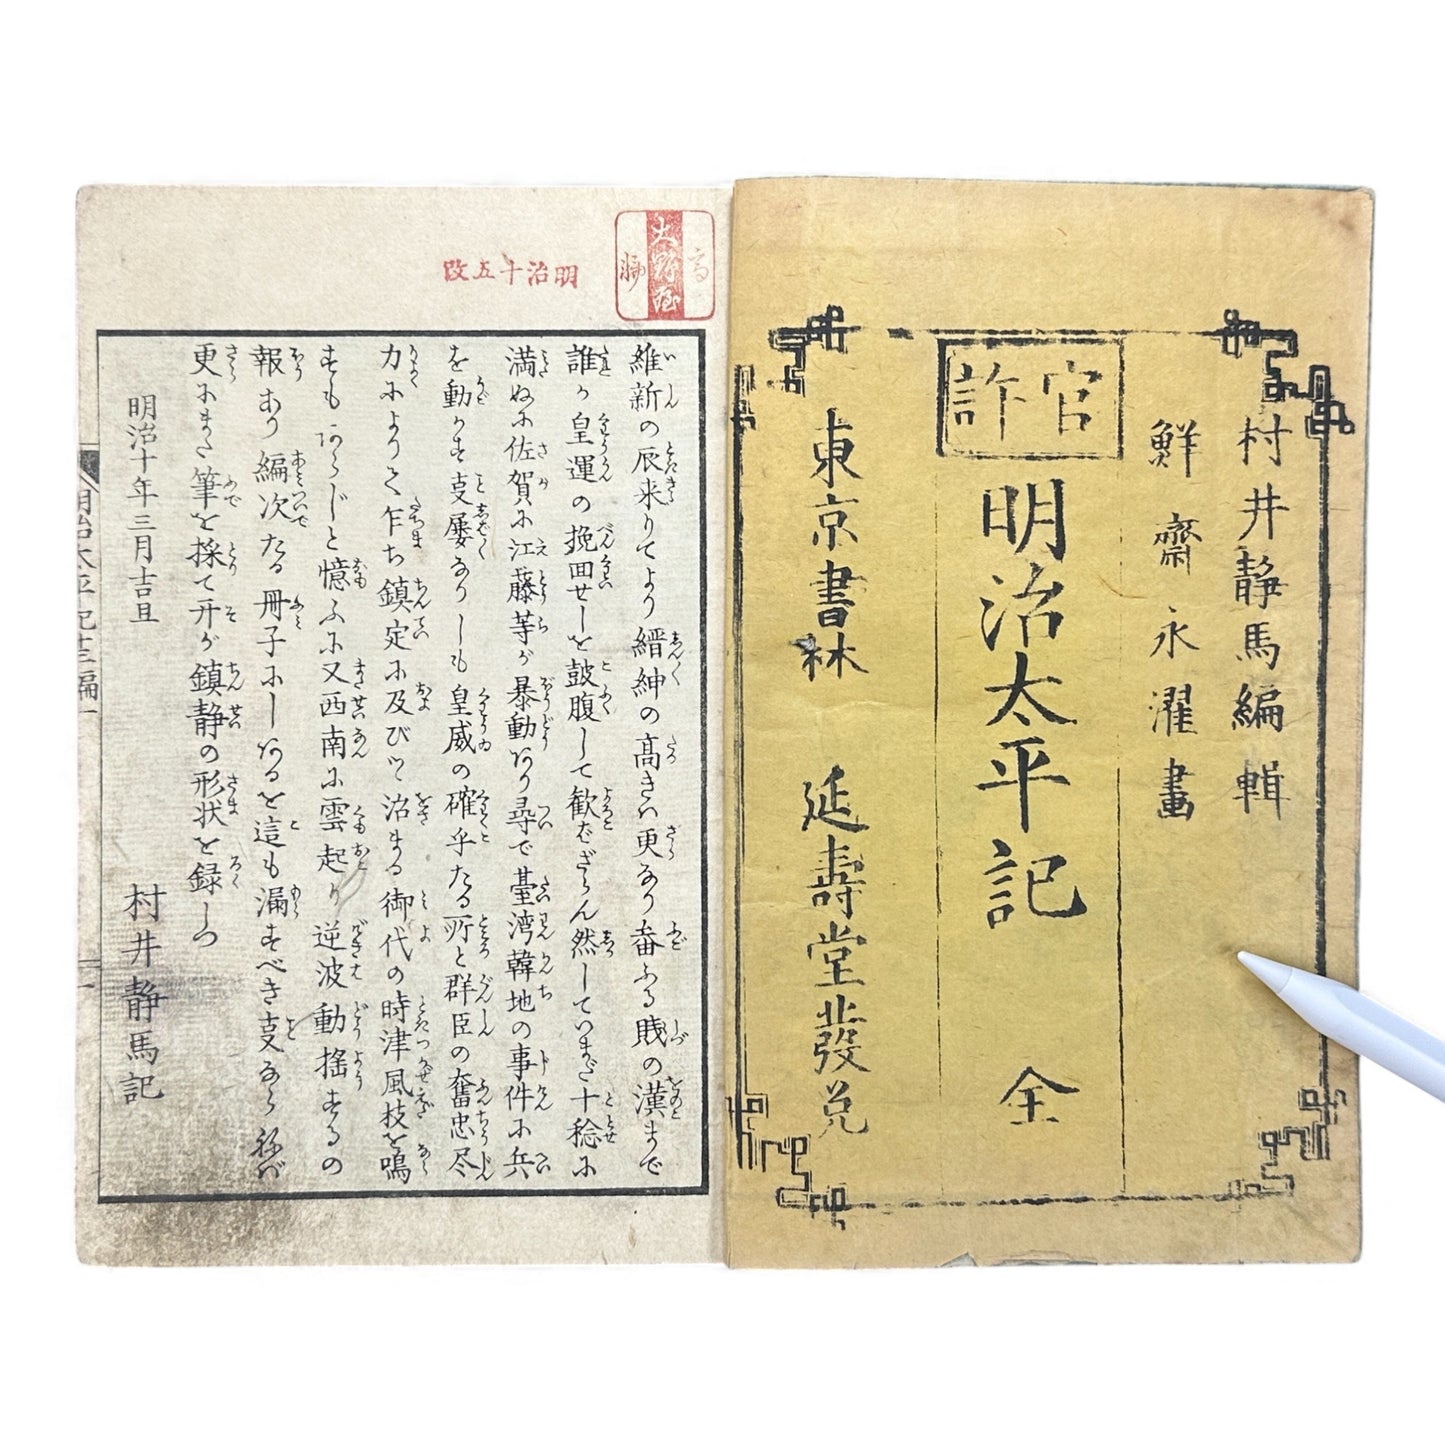 村井静馬編輯
鮮齋永濯畫
官許
明治太平記 全
東京書林 延壽堂發兌
大野屋
明治十五改
維新の辰来りてより縉紳の高きハ更なり畚ふる賎の漢まで
誰か皇運の挽回せしを皷腹して歓バざらん然していまだ十稔に
満ぬに佐賀に江藤等が暴動あり尋で臺湾韓地の事件に兵
を動かす支屡なりしも皇威の確乎たる所と群臣の奮忠尽
力によりて乍ち鎮定に及びツ治まる御代の時津風枝を鳴
すもあらじと憶ふに又西南に雲起り逆波動揺するの
報あり編次たる冊子にしあるを這も漏すべき支なら祢バ
更にまた筆を採て开が鎮静の形状を録しつ
明治十年三月吉旦
村井静馬記
明治太平記十三編一